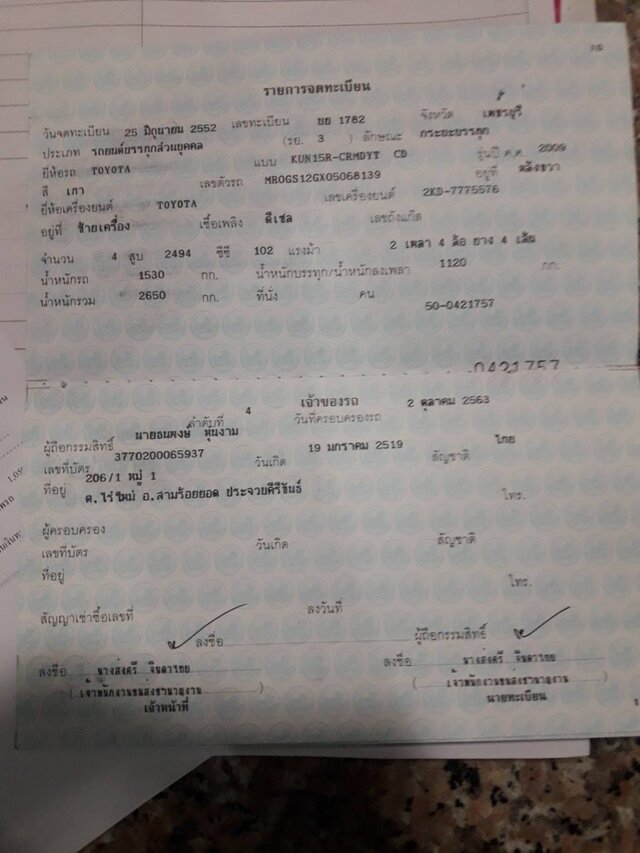 รายการจดทะเบียน
วันจดทะเบียน 25 มิถุนายน 2552 เลขทะเบียน บย 1782 จังหวัด เพชรบุรี
ประเภท รถยนต์บรรทุกส่วนบุคคล (รย. 3 ) ลักษณะ กระบะบรรทุก
ยี่ห้อรถ TOYOTA แบบ KUN15R-CRMDYT CD รุ่นปี ค.ศ. 2009
สี เทา เลขตัวรถ MR0GS12GX05068139 อยู่ที่ หลังขวา
ยี่ห้อเครื่องยนต์ TOYOTA เลขเครื่องยนต์ 2KD-7775576
อยู่ที่ ซ้ายเครื่อง เชื้อเพลิง ดีเซล เลขถังแก๊ส
จำนวน 4 สูบ 2494 ซีซี 102 แรงม้า 2 เพลา 4 ล้อ ยาง 4 เส้น
น้ำหนักรถ 1530 กก. น้ำหนักบรรทุก/น้ำหนักลงเพลา 1120 กก.
น้ำหนักรวม 2650 กก. ที่นั่ง คน
50-0421757
0421757
เจ้าของรถ
ลำดับที่ 4 วันที่ครอบครองรถ 2 ตุลาคม 2563
ผู้ถือกรรมสิทธิ์ นายธนพงษ์ หุ่นงาม
เลขที่บัตร 3770200065937 วันเกิด 19 มกราคม 2519 สัญชาติ ไทย
ที่อยู่ 206/1 หมู่ 1
ต.ไร่ใหม่ อ.สามร้อยยอด ประจวบคีรีขันธ์ โทร.
ผู้ครอบครอง
เลขที่บัตร วันเกิด สัญชาติ
ที่อยู่ โทร.
สัญญาเช่าซื้อเลขที่ ลงวันที่
ลงชื่อ ผู้ถือกรรมสิทธิ์
ลงชื่อ นางส่งศรี จินดาไทย ลงชื่อ นางส่งศรี จินดาไทย
( เจ้าพนักงานขนส่งชำนาญงาน ) ( เจ้าพนักงานขนส่งชำนาญงาน )
เจ้าหน้าที่ นายทะเบียน